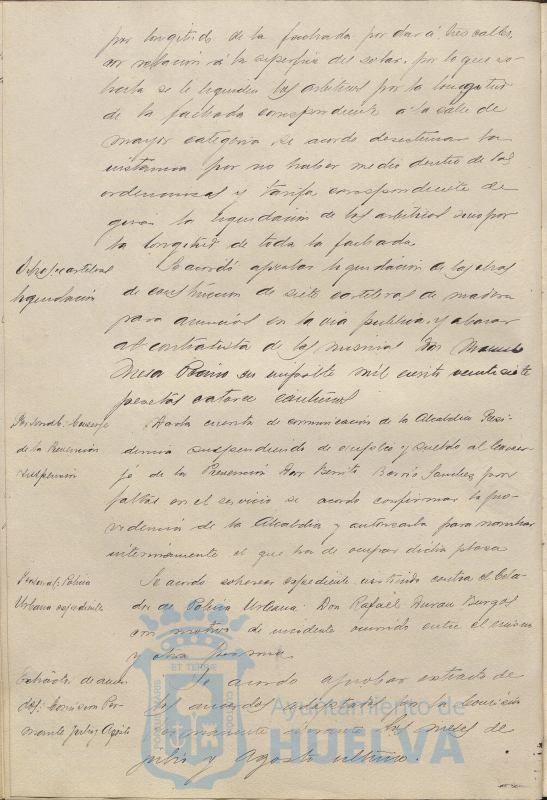 por longitud de la fachada por dar á tres calles,
con relación á la superficie del solar, por lo que so-
licita se le liquiden los arbitrios por la longitud
de la fachada correspondiente á la calle de
mayor categoría, se acordó desestimar la
instancia por no haber medio dentro de las
ordenanzas y tarifa correspondiente de
girar la liquidación de los arbitrios sino por
la longitud de toda la fachada.
carteleras
liquidación
Se acordó aprobar liquidación de las obras
de construcción de siete carteleras de madera
para anuncios en la vía pública y abonar
al contratista de las mismas Don Manuel
Mesa su importe mil ciento veintisiete
pesetas catorce céntimos
Personal: Conserje
de la Prevención
suspensión
Dada cuenta de comunicación de la Alcaldía Presi-
dencia suspendiendo de empleo y sueldo al Conser-
je de la Prevención Don Benito Barrio Sanchez por
faltas en el servicio se acordó confirmar la pro-
videncia de la Alcaldía y autorizarla para nombrar
interinamente el que ha de ocupar dicha plaza
Personal: Policía
Urbana expediente
Se acordó sobreseer expediente instruido contra el Cela-
dor de Policía Urbana Don Rafael Duran Burgos
con motivo de incidente ocurrido entre el mismo
y otra persona
Extracto de acuer-
dos: Comision Per-
manente Julio y Agosto
Se acordó aprobar extracto de
los acuerdos adoptados por la Comisión
Permanente durante los meses de
julio y Agosto último.
ET TERRAE
Ayuntamiento de
HUELVA